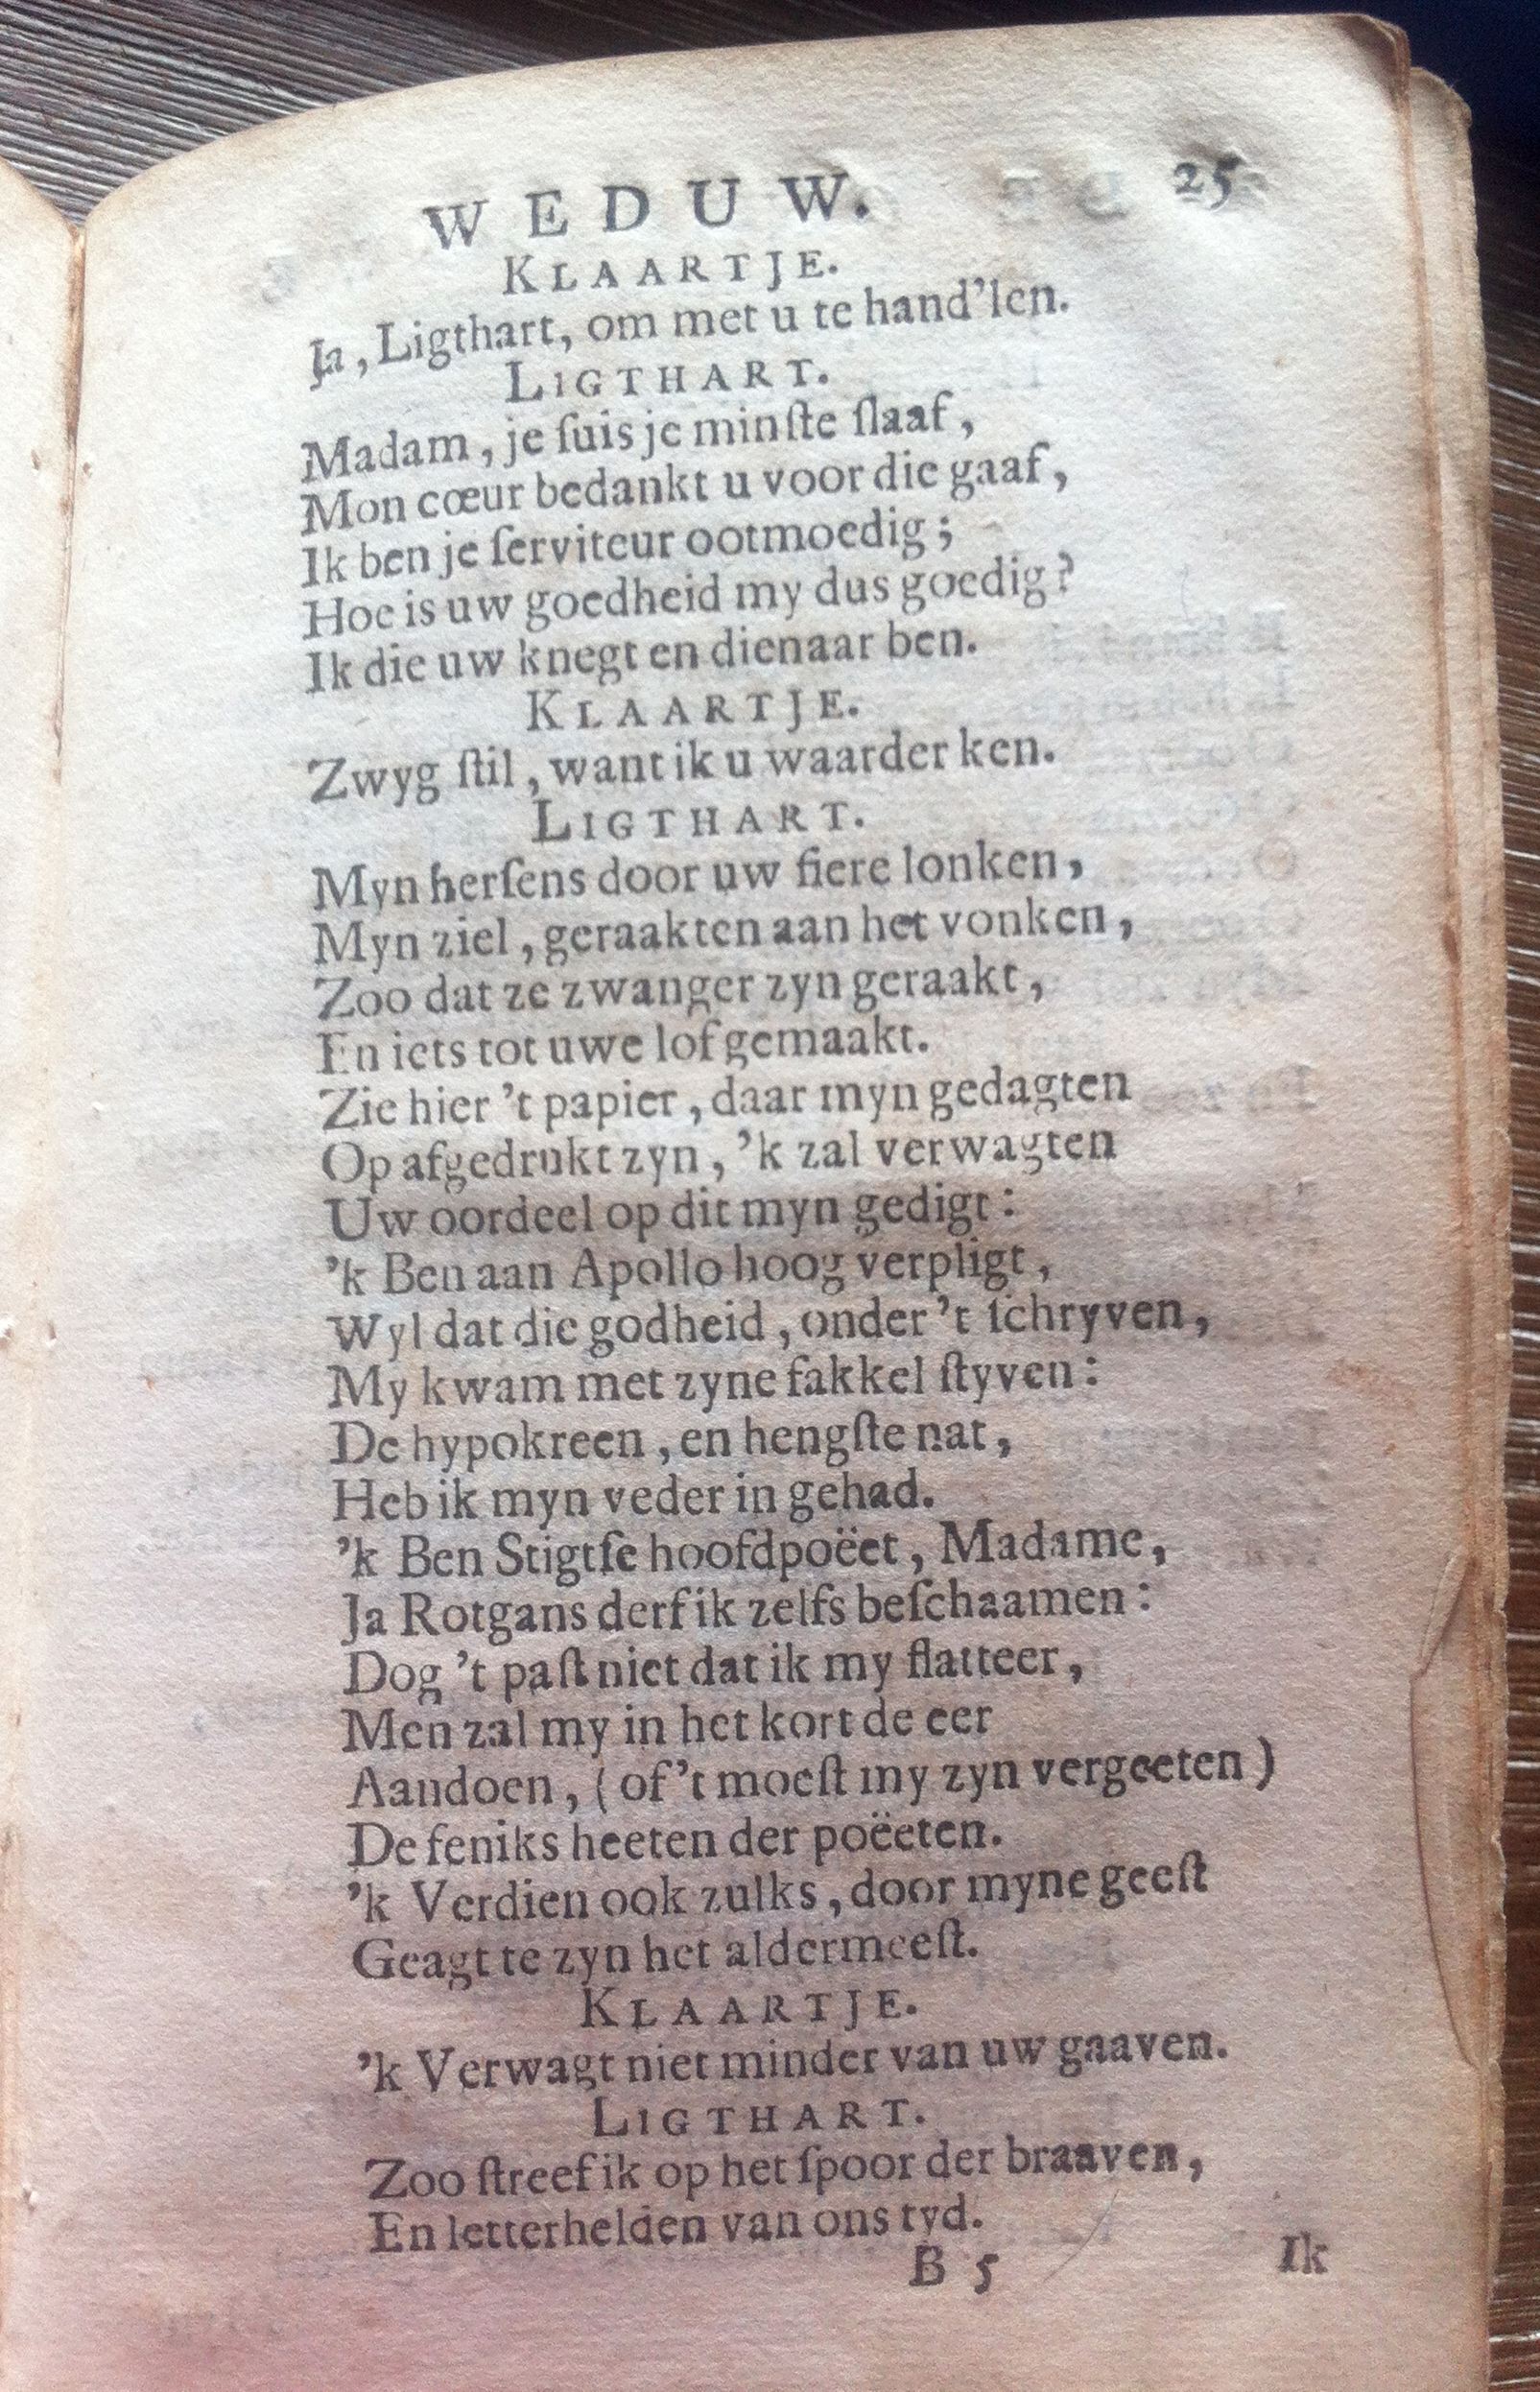 WEDUW. 25
KLAARTJE.
Ja, Ligthart, om met u te hand'len.
LIGTHART.
Madam, je ſuis je minſte ſlaaf,
Mon cœur bedankt u voor die gaaf,
Ik ben je ſerviteur ootmoedig;
Hoe is uw goedheid my dus goedig?
Ik die uw knegt en dienaar ben.
KLAARTJE.
Zwyg ſtil, want ik u waarder ken.
LIGTHART.
Myn herſens door uw fiere lonken,
Myn ziel, geraakten aan het vonken,
Zoo dat ze zwanger zyn geraakt,
En iets tot uwe lof gemaakt.
Zie hier 't papier, daar myn gedagten
Op afgedrukt zyn, 'k zal verwagten
Uw oordeel op dit myn gedigt:
'k Ben aan Apollo hoog verpligt,
Wyl dat die godheid, onder 't ſchryven,
My kwam met zyne fakkel ſtyven:
De hypokreen, en hengſte nat,
Heb ik myn veder in gehad.
'k Ben Stigtſe hoofdpoëet, Madame,
Ja Rotgans derf ik zelfs beſchaamen:
Dog 't paſt niet dat ik my flatteer,
Men zal my in het kort de eer
Aandoen, (of 't moeſt my zyn vergeeten)
De feniks heeten der poëeten.
'k Verdien ook zulks, door myne geeſt
Geagt te zyn het aldermeeſt.
KLAARTJE.
'k Verwagt niet minder van uw gaaven.
LIGTHART.
Zoo ſtreef ik op het ſpoor der braaven,
En letterhelden van ons tyd.
B 5 Ik